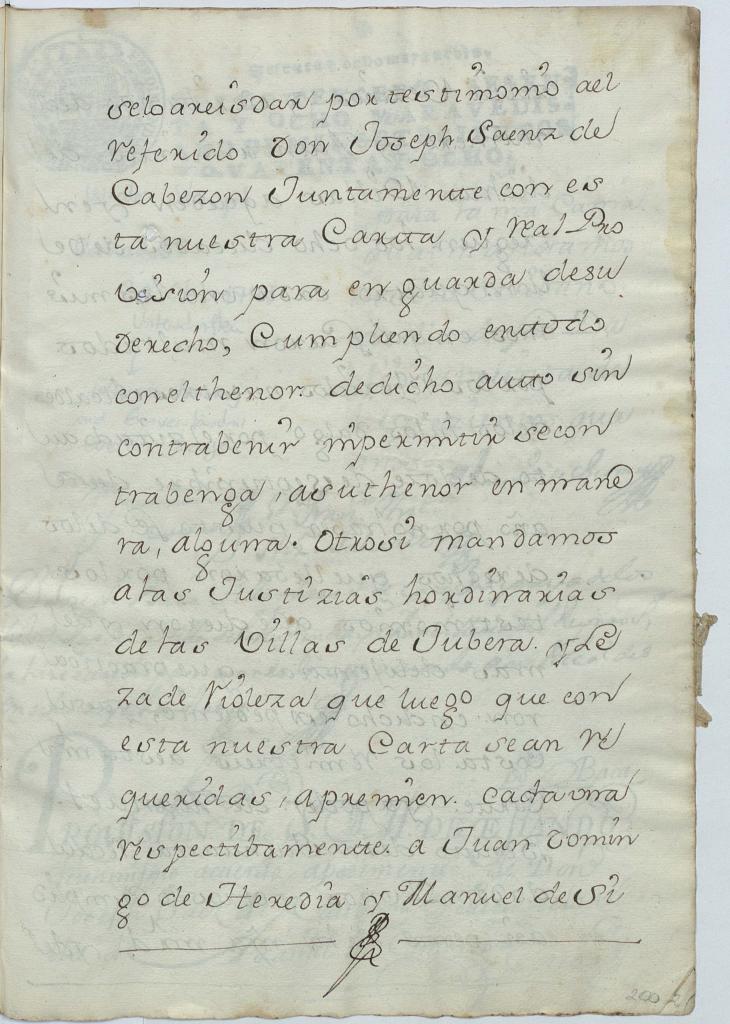 selo areisdar por testimonio ael
referido Don Joseph Saenz de
Cabezon Juntamentte con es
ta nuestra Cartta y real Pro
bision para en guarda desu
derecho, Cumpliendo enttodo
conelthenor. dedicho autto sin
contrabenir nipermitir secon
trabenga, asuthenor en mane
ra, alguna. Otrosi mandamos
alas Justizias hordinarias
delas Villas de Jubera. y Le
za de rioleza que luego que con
esta nuestra Carta sean re
queridas, apremien. cada una
respectibamentte. a Juan Domin
go de Heredia y Manuel de Si
200